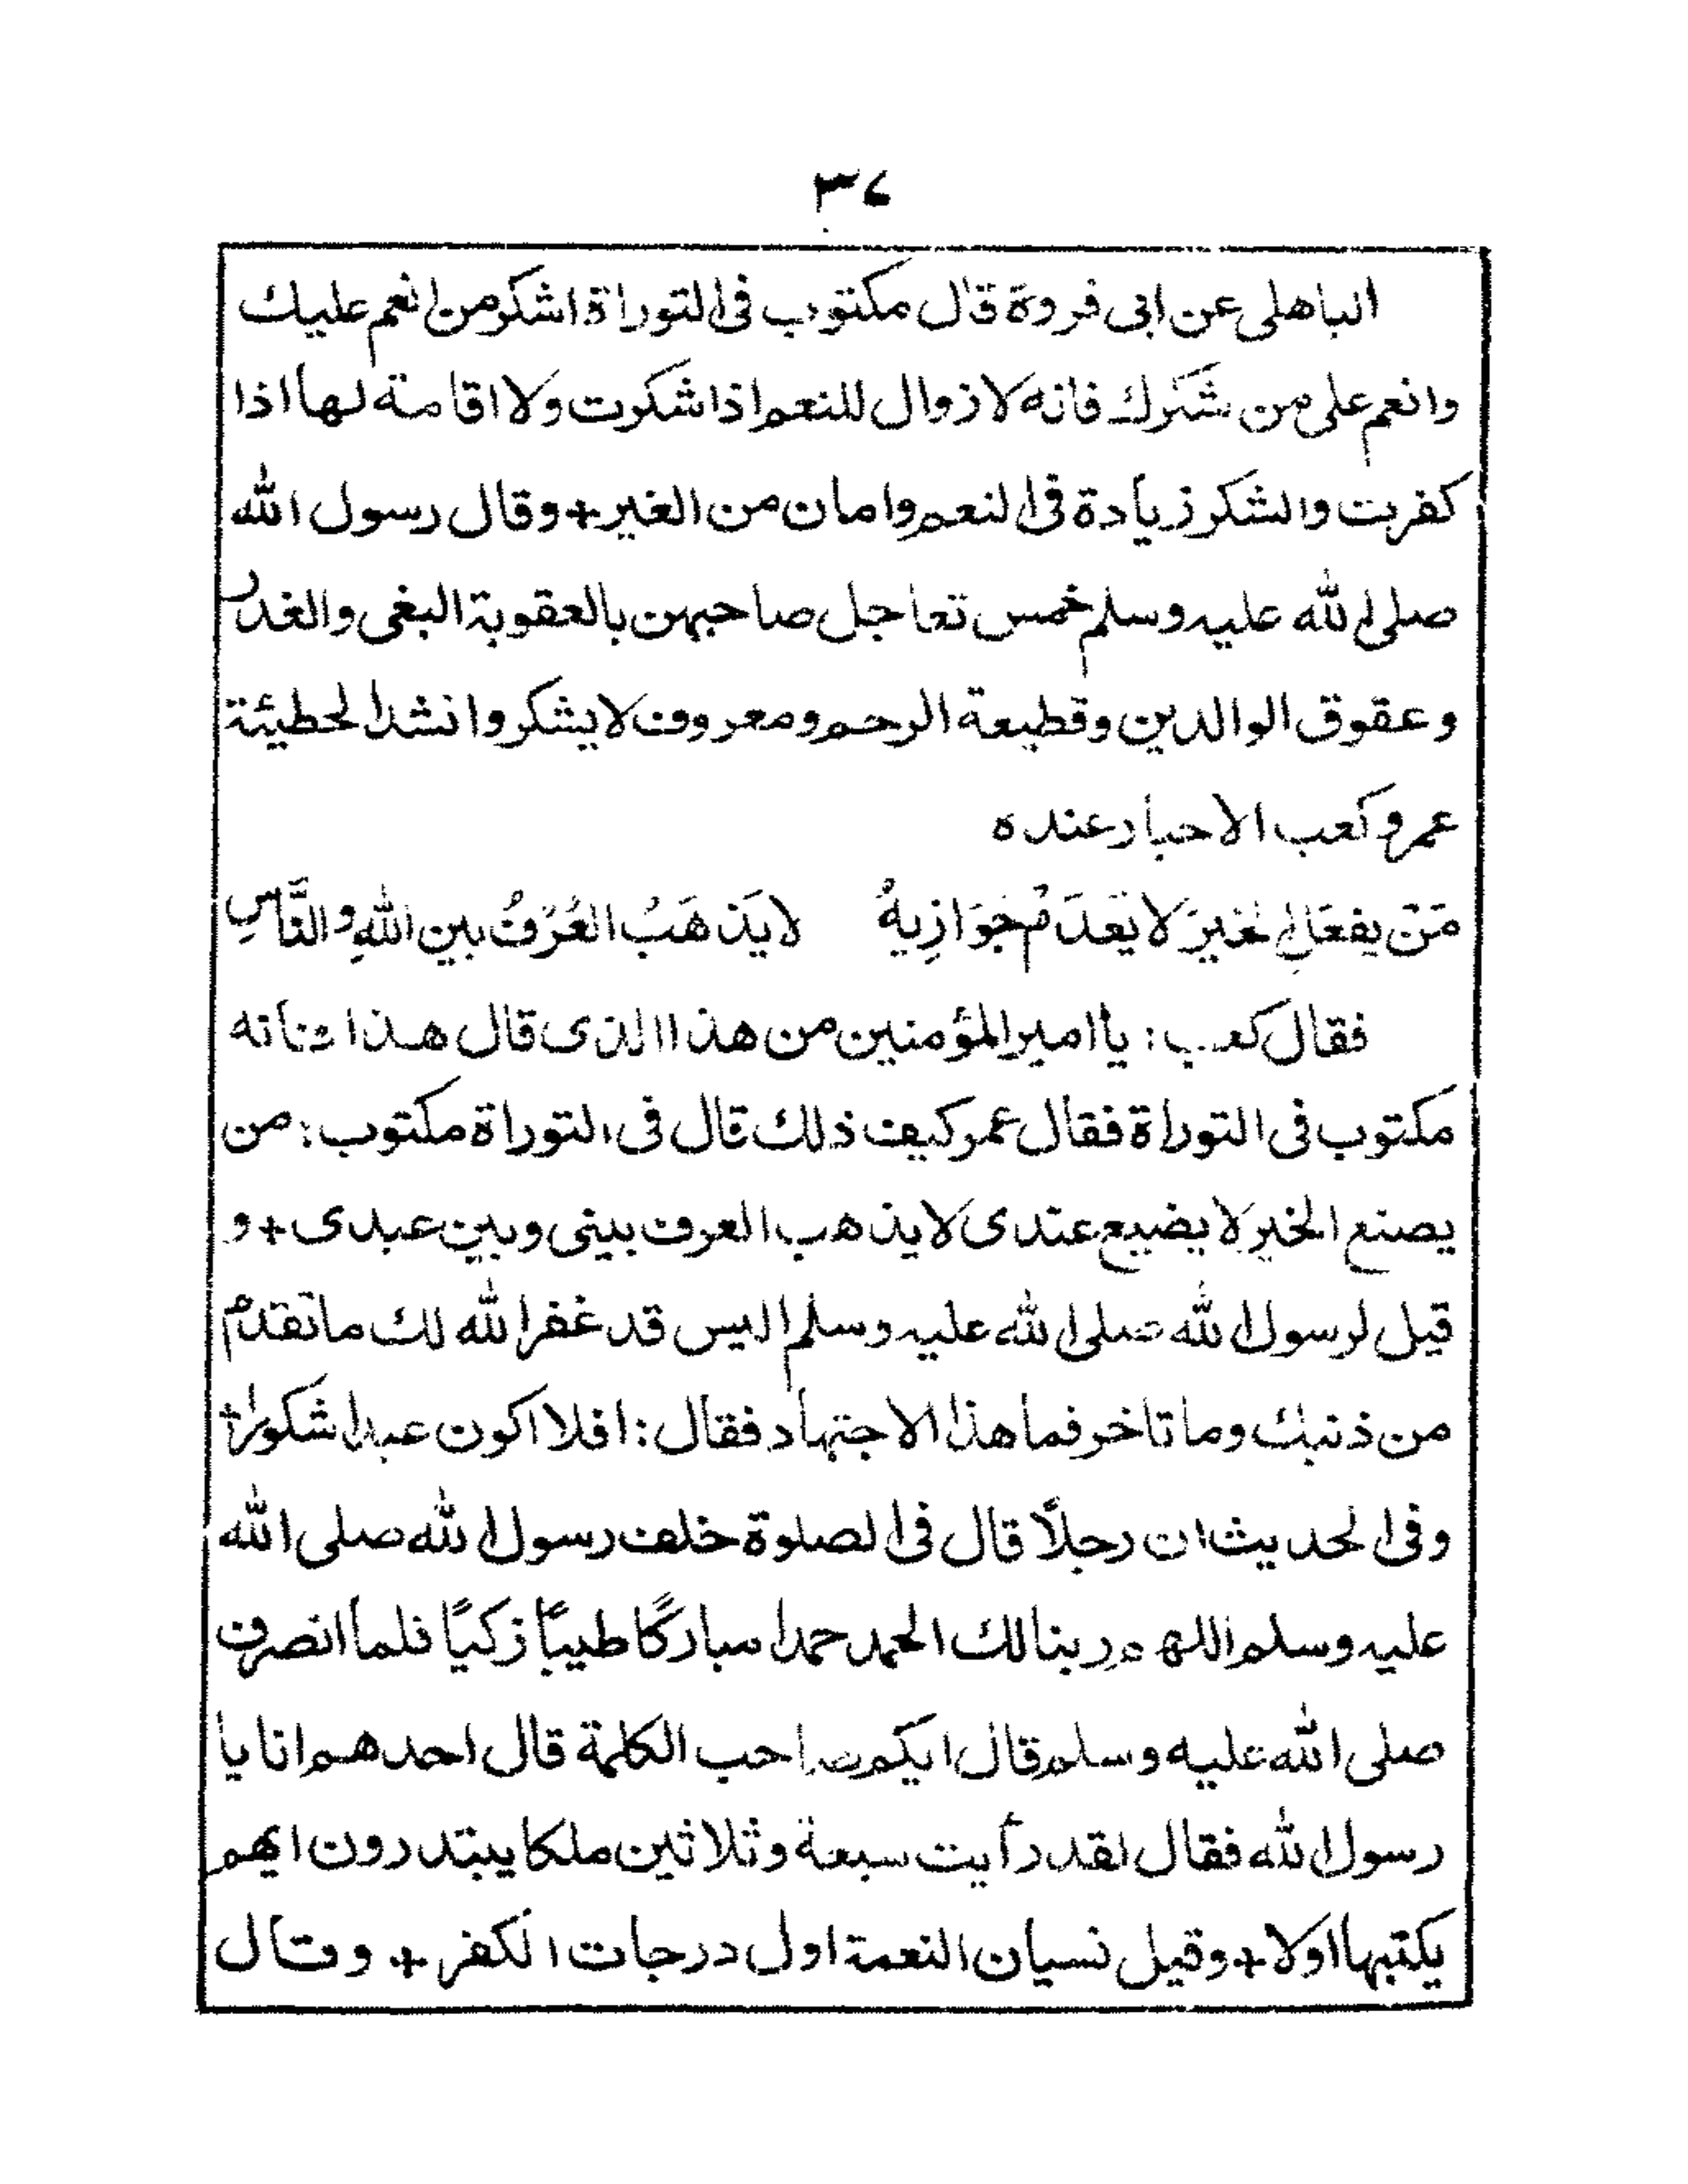 ٣٤
الباهلى عن ابى فروة قال مكتوب فى التوراة اشكر من انعم عليك
وانعم على من شكرك فانه لا زوال للنعم اذا شكرت ولا اقامة لها اذا
كفرت والشكر زيادة فى النعم وامان من الغير + وقال رسول الله
صلى الله عليه وسلم خمس تعاجل صاحبهن بالعقوبة البغى والغدر
وعقوق الوالدين وقطيعة الرحم ومعروف لا يشكر وانشد الحطيئة
عمر وكعب الاحبار عنده
مَنْ يفعَلِ الخَيرَ لا يَعْدَمْ جَوَازِيهُ لا يَذهَبُ العُرْفُ بين اللهِ والنَّاسِ
فقال كعب : يا امير المؤمنين من هذا الذى قال هذا فانه
مكتوب فى التوراة فقال عمر كيف ذلك قال فى التوراة مكتوب : من
يصنع الخير لا يضيع عندى لا يذهب العرف بينى وبين عبدى + و
قيل لرسول الله صلى الله عليه وسلم اليس قد غفر الله لك ما تقدم
من ذنبك وما تاخر فما هذا الاجتهاد فقال : افلا اكون عبدا شكورا +
وفى الحديث ان رجلاً قال فى الصلوة خلف رسول الله صلى الله
عليه وسلم اللهم ربنا لك الحمد حمدا مباركًا طيبًا زكيًا فلما انصرف
صلى الله عليه وسلم قال ايكم صاحب الكلمة قال احدهم انا يا
رسول الله فقال لقد رأيت سبعة وثلاثين ملكا يبتدرون ايهم
يكتبها اولا + وقيل نسيان النعمة اول درجات الكفر + وقال